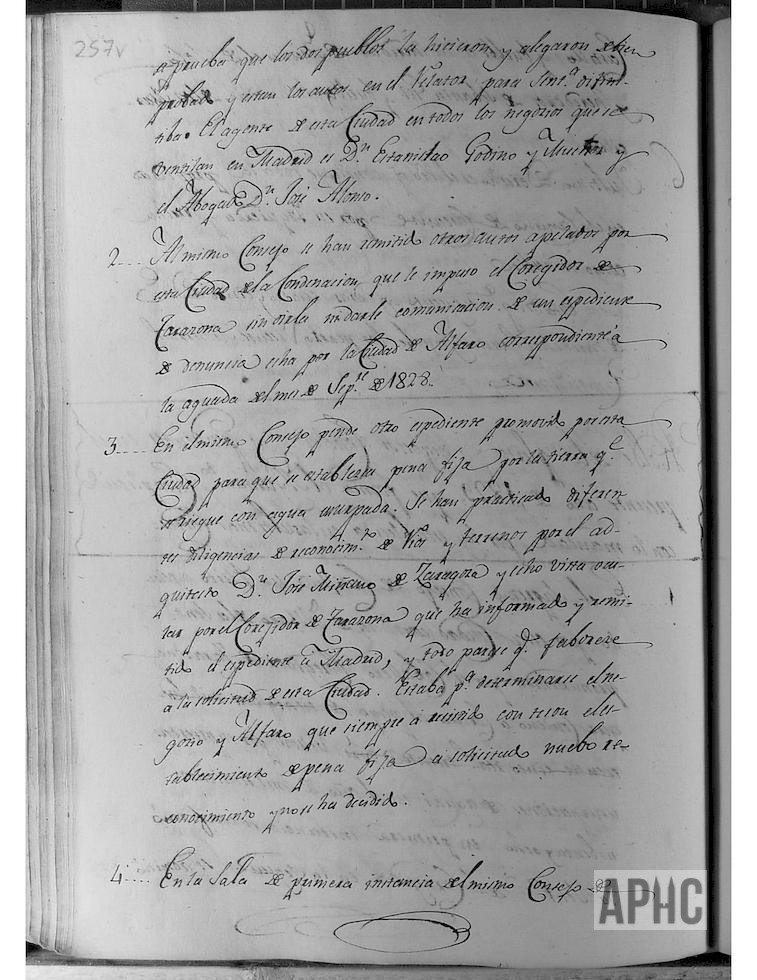 257v
a prueba que los dos pueblos la hicieron y alegaron de bien
probado y estan los autos en el Relator para Sent.ª difini-
tiba. El agente de esta Ciudad en todos los negocios que se
ventilan en Madrid es D.n Estanislao Godino y Muñoz y
el Abogado D.n José Alonso.
2.... Al mismo Consejo se han remitido otros autos apelados por
esta Ciudad de la Condenacion que le impuso el Corregidor de
Tarazona sin oirla ni darle comunicacion de un espediente
de denuncia echa por la Ciudad de Alfaro correspondiente a
la aguada del mes de Sep.re de 1828.
3.... En el mismo Consejo pende otro espediente promovido por esta
Ciudad para que se establezca pena fija por la tierra q.e
se riegue con agua usurpada. Se han practicado diferen-
tes diligencias de reconocim.to de Rios y terrenos por el ar-
quitecto D.n José Miñano de Zaragoza y echo vista ocu-
lar por el Corregidor de Tarazona que ha informado y remi-
tido el espediente a Madrid, y todo parece q.e faborece
a la solicitud de esta Ciudad. Estaba p.ª determinarse el ne-
gocio y Alfaro que siempre á resistido con teson el es-
tablecimiento de pena fija á solicitado nuebo re-
conocimiento y no se ha decidido.
4.... En la Sala de primera instancia del mismo Consejo de
APHC